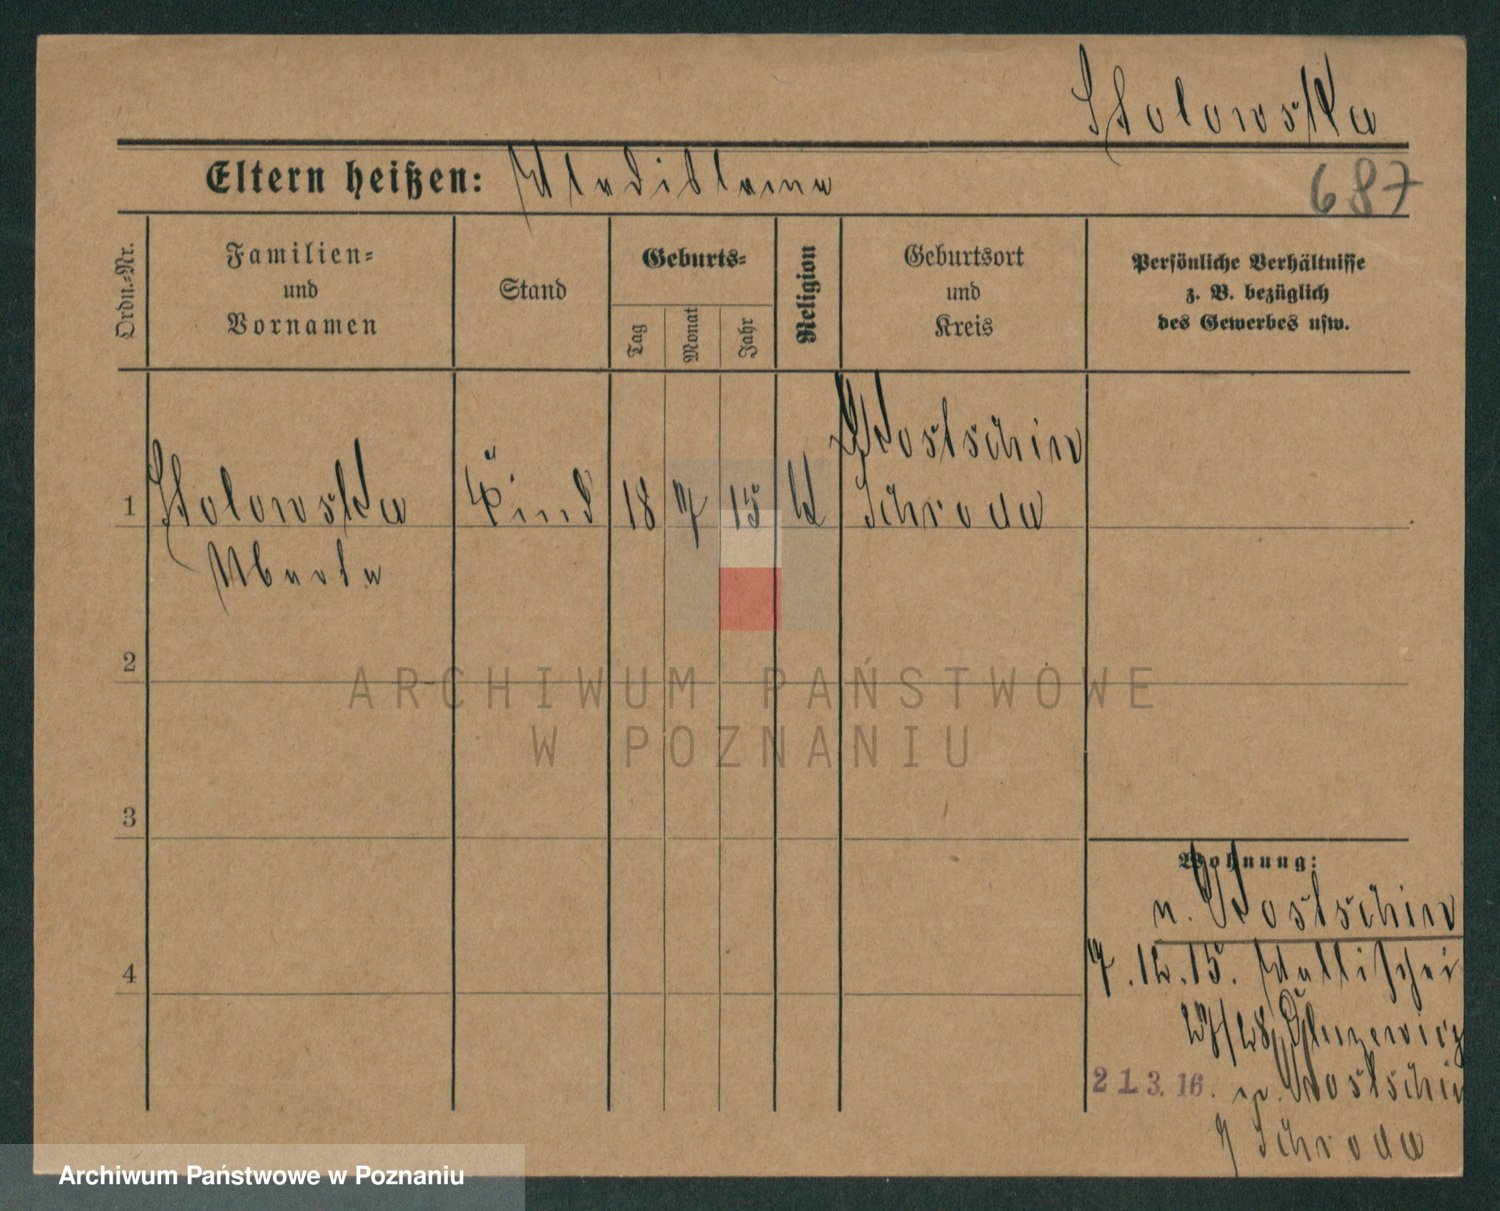 Stolowska
Eltern heißen: Wladislawa
687
Ordn.-Nr.
Familien-
und
Vornamen
Stand
Geburts-
Tag
Monat
Jahr
Religion
Geburtsort
und
Kreis
Persönliche Verhältnisse
z. B. bezüglich
des Gewerbes usw.
1 Stolowska Kind 18 7 15 k Kostschin
Schroda
Maria
2
3
4
Wohnung:
n. Kostschin
7.12.15. Wallischei
27/28
21.3.16. Kostschin
Schroda
ARCHIWUM PAŃSTWOWE
W POZNANIU
Archiwum Państwowe w Poznaniu